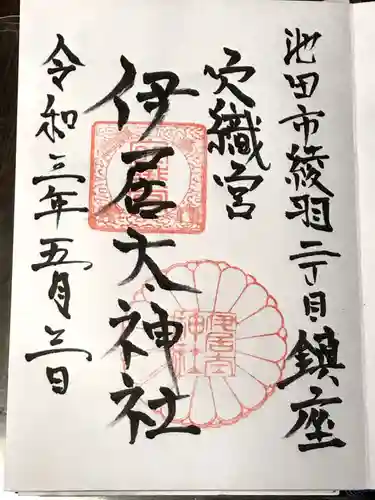 池田市綾羽二丁目鎮座
穴織宮
伊居太神社
令和三年五月三日
伊居太
神社